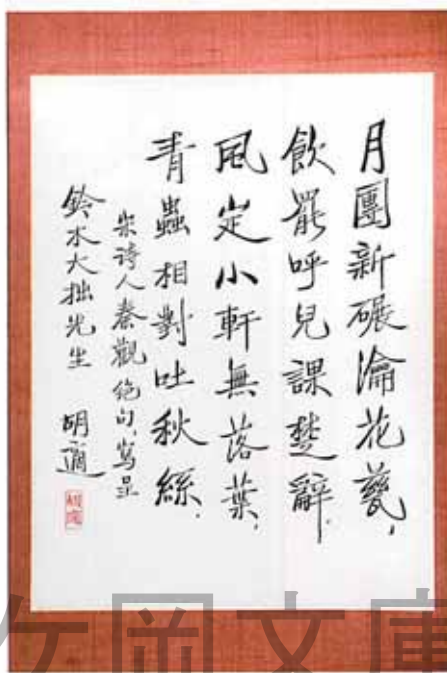 月團新碾瀹花甆，
飲罷呼兒課楚辭．
風定小軒無落葉，
青蟲相對吐秋絲．
宋詩人秦觀絕句，寫呈
鈴木大拙先生 胡適
胡適
ケ岡文庫